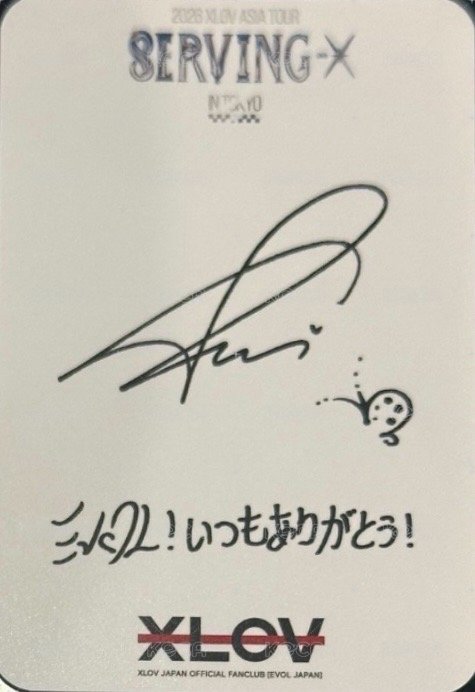 2026 XLOV ASIA TOUR
SERVING-X
IN TOKYO
いつもありがとう!
XLOV
XLOV JAPAN OFFICIAL FANCLUB [EVOL JAPAN]